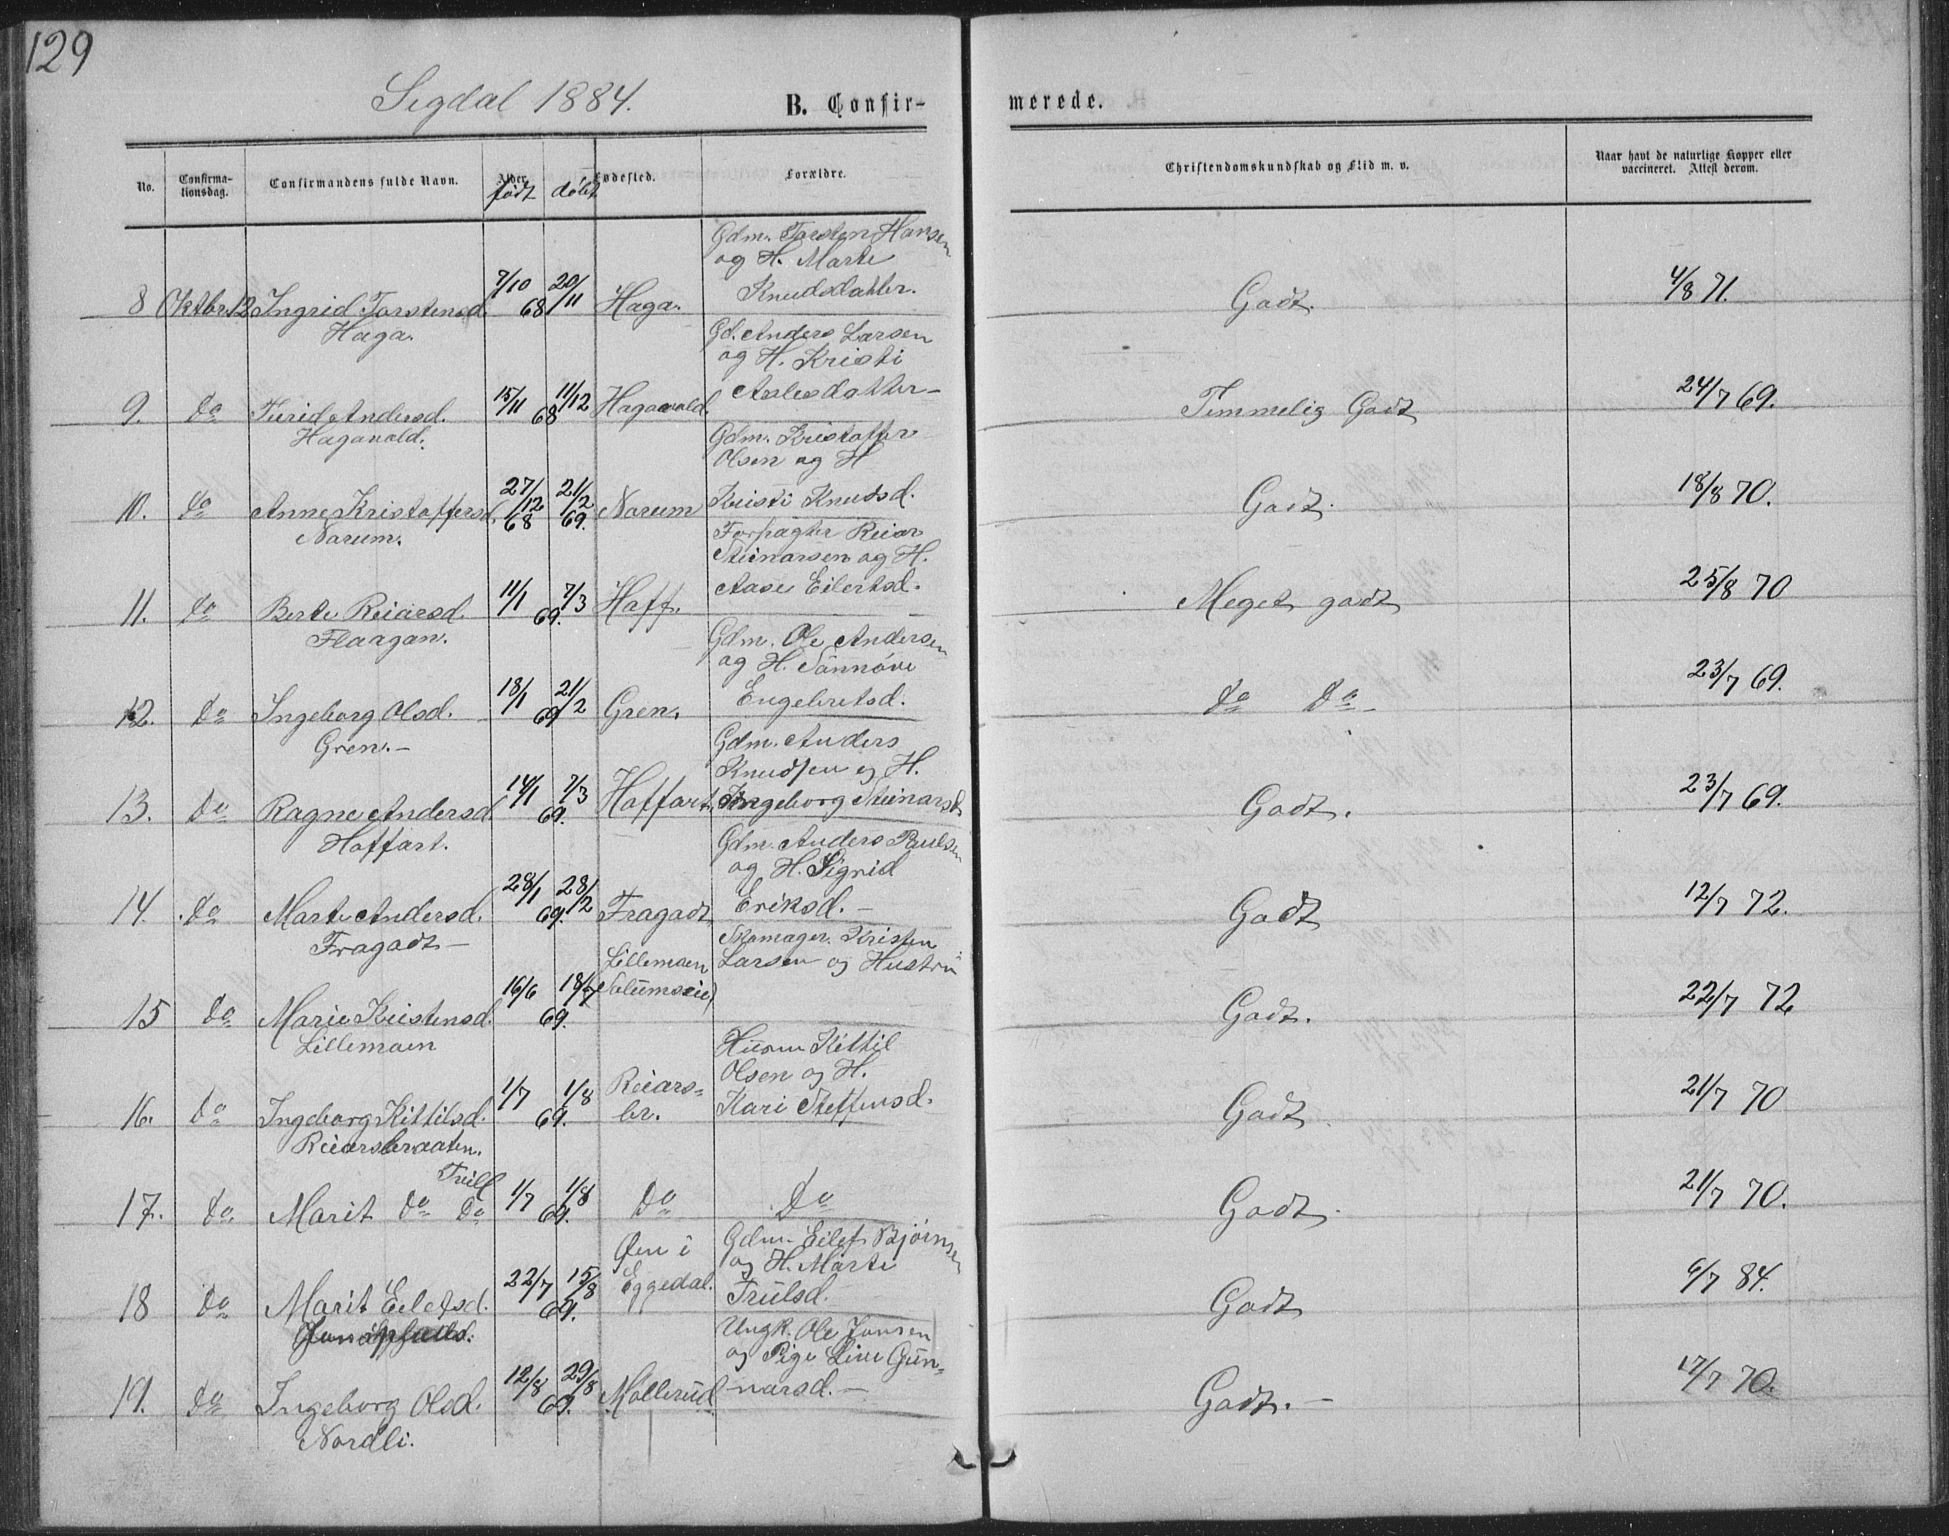 129
Sigdal 1884.
B. Confirmerede.
No. Confirmationsdag. Confirmandens fulde Navn. Alder født døbt Fødested. Forældre. Christendomskundskab og Flid m. v. Naar havt de naturlige Kopper eller vaccineret. Attest derom.
Gdm. Torsten Hansen
og H. Marte
Knudsdatter.
8 Oktbr. 12 Ingrid Torstensd. 7/10 68 20/11 Haga. Godt. 4/8 71.
Haga.
Gd. Anders Larsen
og H. Kristi
Aslesdatter-
9. do Turid Andersd. 15/11 68 11/12 Hagavold Temmelig Godt 24/7 69.
Hagavold.
Gdm. Kristoffer
Olsen og H
10. do Anne Kristoffersd. 27/12 68 21/2 69. Narum Kristi Knutsd. Godt. 18/8 70.
Narum.
Forpagter Reiar
Steinarsen og H.
Aase Eilertsd.
11. do Berte Reiarsd. 11/1 69. 7/3 Hoff. Meget godt 25/8 70
Flaagan.
Gdm. Ole Andersen
og H. Sønnøve
Engebretsd.
12. do Ingeborg Olsd. 18/1 69 21/2 Gren. do do 23/7 69.
Gren.-
Gdm. Anders
Knudsen og H.
13. do Ragne Andersd. 14/1 69. 7/3 Hoffart. Ingeborg Steinarsd. Godt. 23/7 69.
Hoffart.
Gdm. Anders Paulsen
og H. Sigrid
14. do Marte Andersd. 28/1 69. 28/2 Fragadt Eriksd.- Godt 12/7 72.
Fragadt-
Skomager. Kristen
Larsen og Hustru
Lillemoen
15 do Marie Kristensd. 16/6 69. 18/7 Solumseie) Godt. 22/7 72
Lillemoen
Husm Kittil
Olsen og H.
16. do Ingeborg Kittilsd. 1/7 69. 1/8 Reiars=br. Kari Steffensd. Godt 21/7 70
Reiarsbraaten.
Tvill
17. do Marit do do 1/7 69. 1/8 do do Godt 21/7 70.
Gdm. Eilef Bjørnsen
og H. Marte
18 do Marit Eilefsd. 22/7 69. 15/8 Øen i Eggedal. Trulsd. Godt 6/7 84.
Ungk. Ole Jonsen
og Pige Live Gun=
19. do Ingeborg Olsd. 12/8 69. 29/8 Møllerud narsd.- Godt.- 17/7 70.
Nordli.